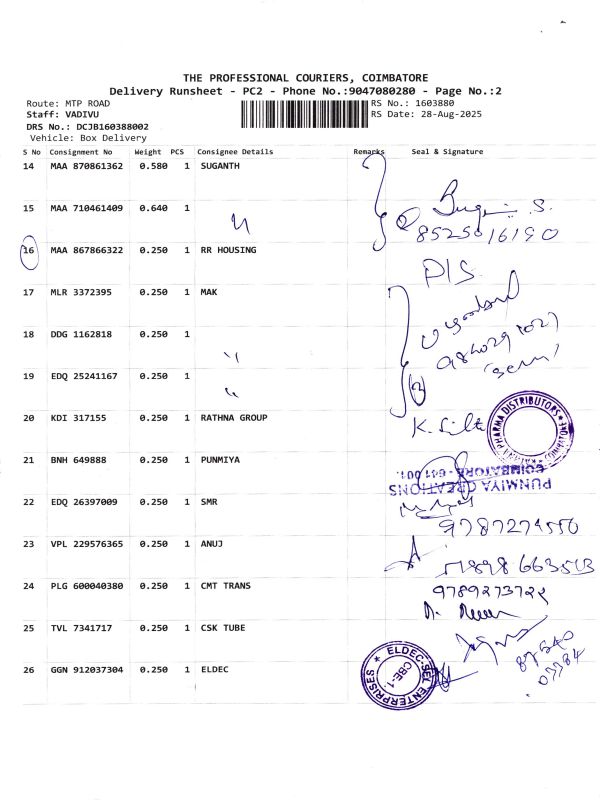 THE PROFESSIONAL COURIERS, COIMBATORE
Delivery Runsheet - PC2 - Phone No.:9047080280 - Page No.:2
Route: MTP ROAD
Staff: VADIVU
DRS No.: DCJB160388002
Vehicle: Box Delivery
RS No.: 1603880
RS Date: 28-Aug-2025
S No Consignment No Weight PCS Consignee Details Remarks Seal & Signature
14 MAA 870861362 0.580 1 SUGANTH
15 MAA 710461409 0.640 1 〃
2 S.
8525016190
16 MAA 867866322 0.250 1 RR HOUSING
DIS.
17 MLR 3372395 0.250 1 MAK
18 DDG 1162818 0.250 1 〃
19 EDQ 25241167 0.250 1 〃
3
20 KDI 317155 0.250 1 RATHNA GROUP
K.
PHARMA DISTRIBUTORS
COIMBATORE
21 BNH 649888 0.250 1 PUNMIYA
PUNMIYA CREATIONS
COIMBATORE - 641 001.
22 EDQ 26397009 0.250 1 SMR
9787274550
23 VPL 229576365 0.250 1 ANUJ
24 PLG 600040380 0.250 1 CMT TRANS
25 TVL 7341717 0.250 1 CSK TUBE
26 GGN 912037304 0.250 1 ELDEC
ELDEC-SEL ENTERPRISES
CBE-1.